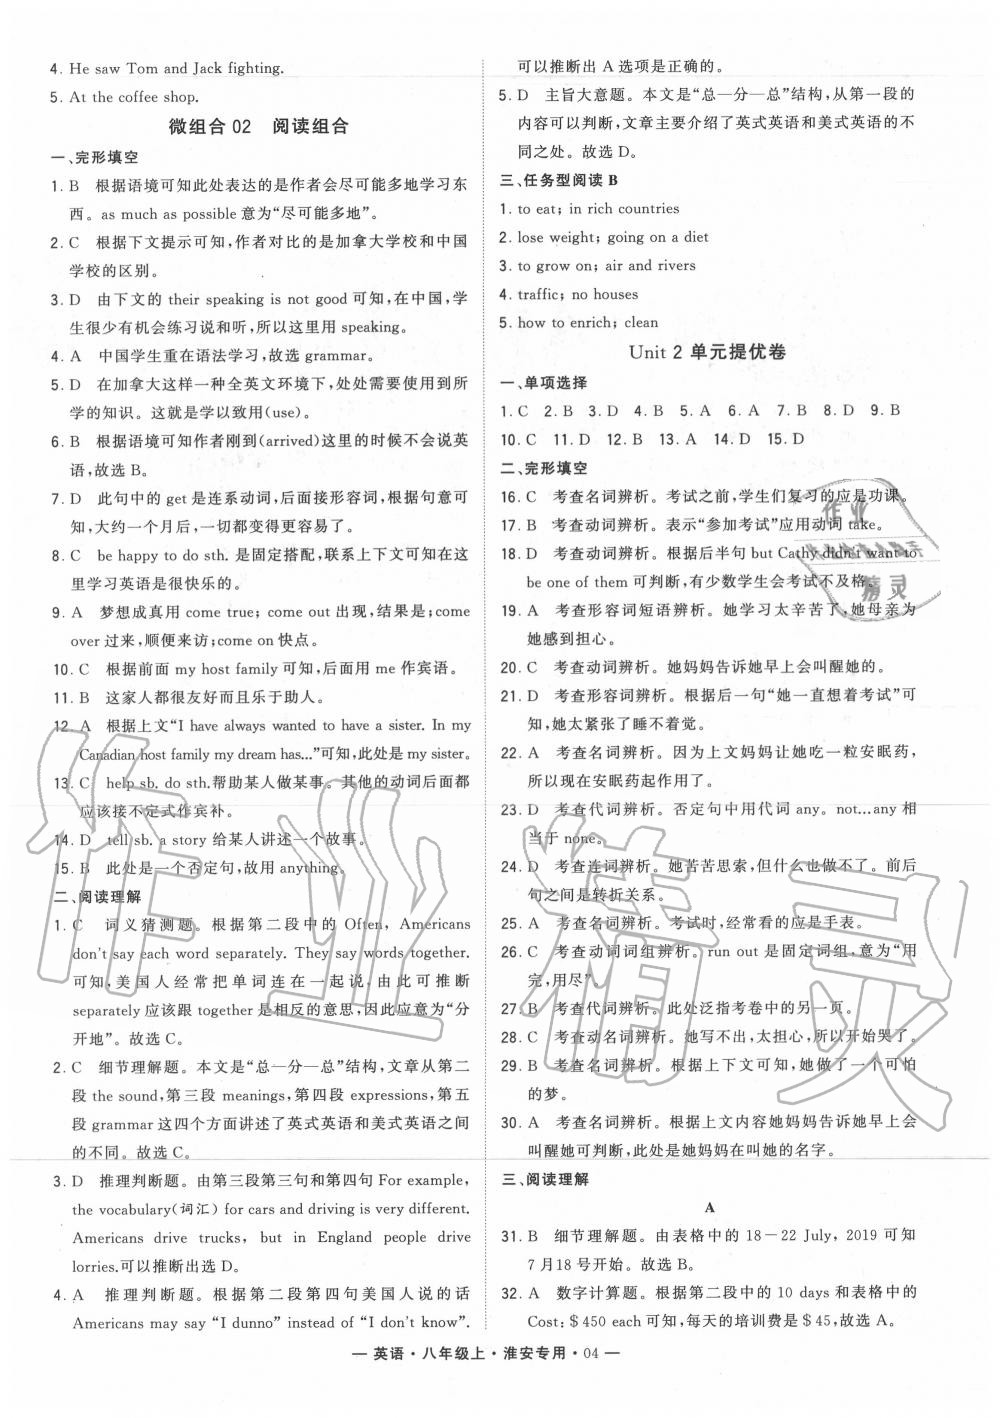 4. He saw Tom and Jack fighting.
5. At the coffee shop.
微组合 02 阅读组合
一、完形填空
1. B 根据语境可知此处表达的是作者会尽可能多地学习东
西。as much as possible意为“尽可能多地”。
2. C 根据下文提示可知,作者对比的是加拿大学校和中国
学校的区别。
3. D 由下文的 their speaking is not good 可知,在中国,学
生很少有机会练习说和听,所以这里用 speaking。
4. A 中国学生重在语法学习,故选 grammar。
5. D 在加拿大这样一种全英文环境下,处处需要使用到所
学的知识。这就是学以致用(use)。
6. B 根据语境可知作者刚到(arrived)这里的时候不会说英
语,故选 B。
7. D 此句中的 get 是连系动词,后面接形容词,根据句意可
知,大约一个月后,一切都变得更容易了。
8. C be happy to do sth. 是固定搭配,联系上下文可知在这
里学习英语是很快乐的。
9. A 梦想成真用 come true; come out 出现,结果是;come
over 过来,顺便来访;come on 快点。
10. C 根据前面 my host family 可知,后面用 me 作宾语。
11. B 这家人都很友好而且乐于助人。
12. A 根据上文“I have always wanted to have a sister. In my
Canadian host family my dream has...”可知,此处是 my sister。
13. C help sb. do sth.帮助某人做某事。其他的动词后面都
应该接不定式作宾补。
14. D tell sb. a story 给某人讲述一个故事。
15. B 此处是一个否定句,故用 anything。
二、阅读理解
1. C 词义猜测题。根据第二段中的 Often, Americans
don't say each word separately. They say words together.
可知,美国人经常把单词连在一起说,由此可推断
separately 应该跟 together 是相反的意思,因此应意为“分
开地”。故选 C。
2. C 细节理解题。本文是“总—分—总”结构,文章从第二
段 the sound,第三段 meanings,第四段 expressions,第五
段 grammar 这四个方面讲述了英式英语和美式英语之间
的不同。故选 C。
3. D 推理判断题。由第三段第三句和第四句 For example,
the vocabulary(词汇) for cars and driving is very different.
Americans drive trucks, but in England people drive
lorries.可以推断出选 D。
4. A 推理判断题。根据第二段第四句美国人说的话
Americans may say “I dunno” instead of “I don't know”.
可以推断出 A 选项是正确的。
5. D 主旨大意题。本文是“总—分—总”结构,从第一段的
内容可以判断,文章主要介绍了英式英语和美式英语的不
同之处。故选 D。
三、任务型阅读 B
1. to eat; in rich countries
2. lose weight; going on a diet
3. to grow on; air and rivers
4. traffic; no houses
5. how to enrich; clean
Unit 2 单元提优卷
一、单项选择
1. C 2. B 3. D 4. A 5. A 6. A 7. B 8. D 9. B
10. C 11. D 12. B 13. A 14. D 15. D
二、完形填空
16. C 考查名词辨析。考试之前,学生们复习的应是功课。
17. B 考查动词辨析。表示“参加考试”应用动词 take。
18. D 考查动词辨析。根据后半句 but Cathy didn't want to
be one of them 可判断,有少数学生会考试不及格。
19. A 考查形容词短语辨析。她学习太辛苦了,她母亲为
她感到担心。
20. C 考查动词辨析。她妈妈告诉她早上会叫醒她的。
21. D 考查形容词辨析。根据后一句“她一直想着考试”可
知,她太紧张了睡不着觉。
22. A 考查名词辨析。因为上文妈妈让她吃一粒安眠药,
所以现在安眠药起作用了。
23. D 考查代词辨析。否定句中用代词 any。not...any 相
当于 none。
24. D 考查连词辨析。她苦苦思索,但什么也做不了。前后
句之间是转折关系。
25. A 考查名词辨析。考试时,经常看的应是手表。
26. C 考查动词词组辨析。run out 是固定词组,意为“用
完,用尽”。
27. B 考查代词辨析。此处泛指考卷中的另一页。
28. C 考查动词辨析。她写不出,太担心,所以开始哭了。
29. B 考查名词辨析。根据上下文可知,她做了一个可怕
的梦。
30. A 考查名词辨析。根据上文内容她妈妈告诉她早上会
叫醒她可判断,此处是她妈妈在叫她的名字。
三、阅读理解
A
31. B 细节理解题。由表格中的 18－22 July, 2019 可知
7月18号开始。故选 B。
32. A 数字计算题。根据第二段中的 10 days 和表格中的
Cost: $450 each 可知,每天的培训费是 $45,故选 A。
— 英语·八年级上·淮安专用·04 —
作业
精灵
作业精灵